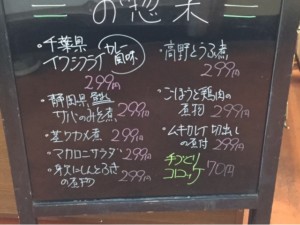 お惣菜
・千葉県
イワシフライ カレー風味
299円
・静岡県
サバのみそ煮 299円
・茎ワカメ煮 299円
・マカロニサラダ 299円
煮物 299円
・高野とうふ煮
299円
・ごぼうと鶏肉の
煮物 299円
・ムキカレイ切出し
の煮付 299円
手づくり
コロッケ 70円